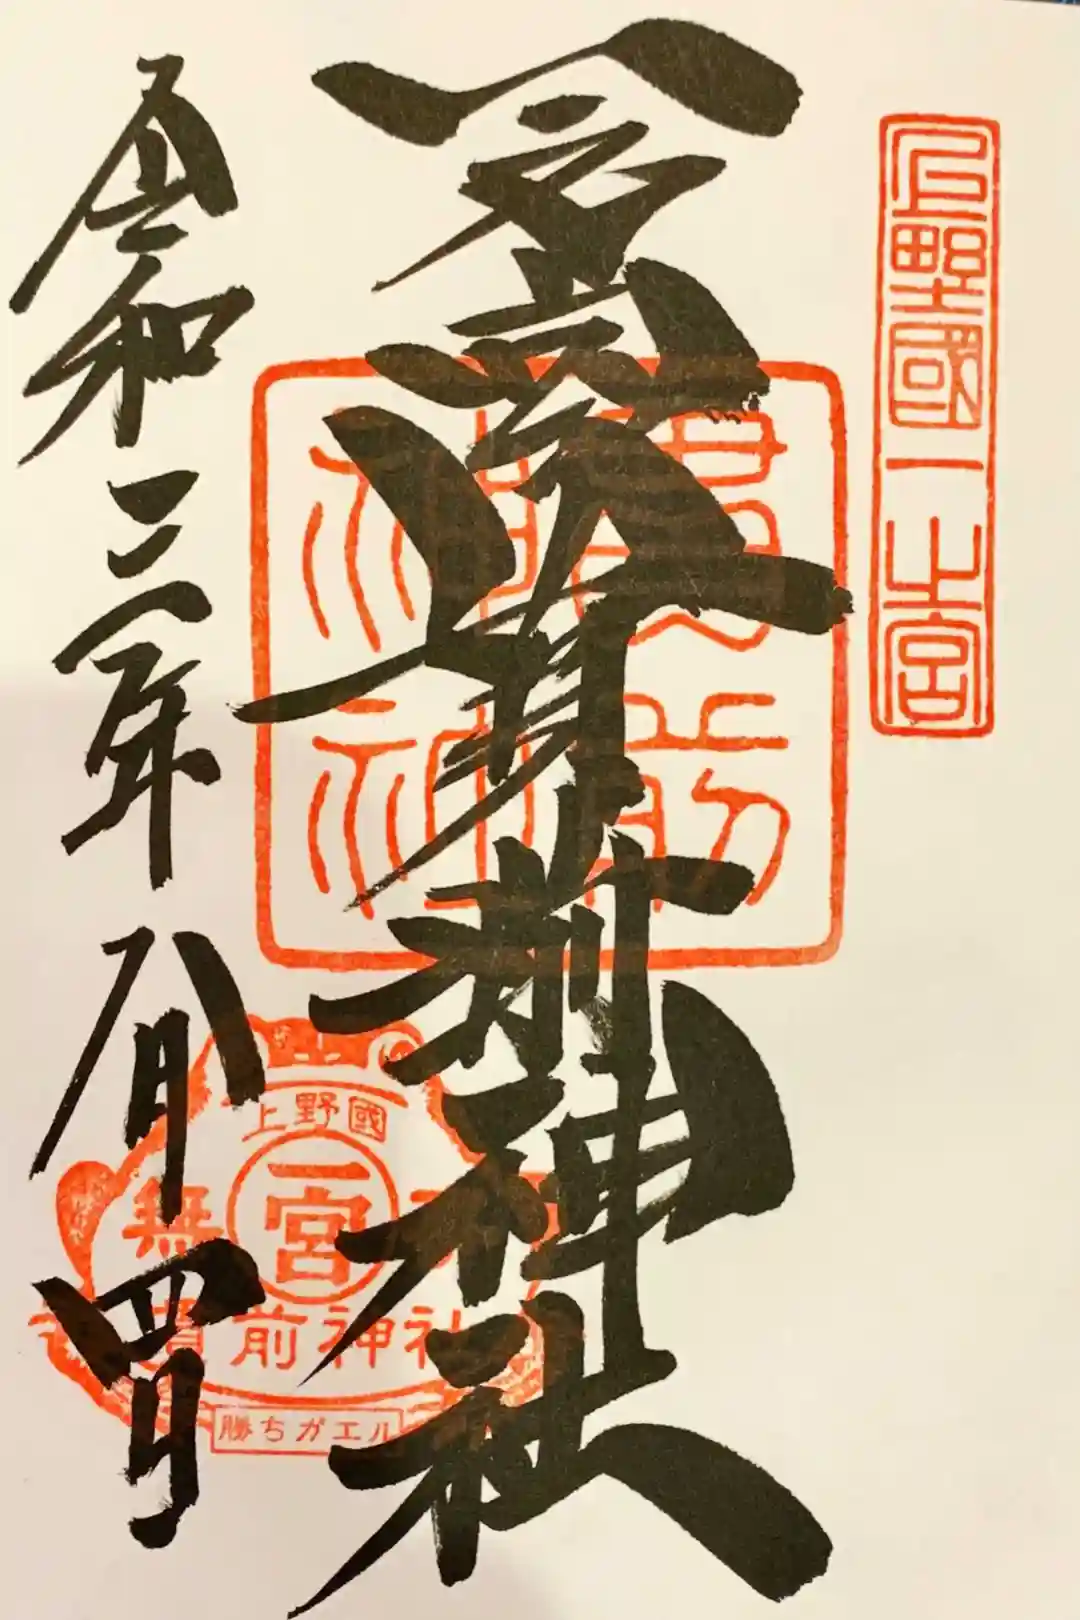 上野國一之宮
一之宮貫前神社
貫前
神社
令和三年八月四日
上野國
一宮
無
貫前神社
勝ちガエル